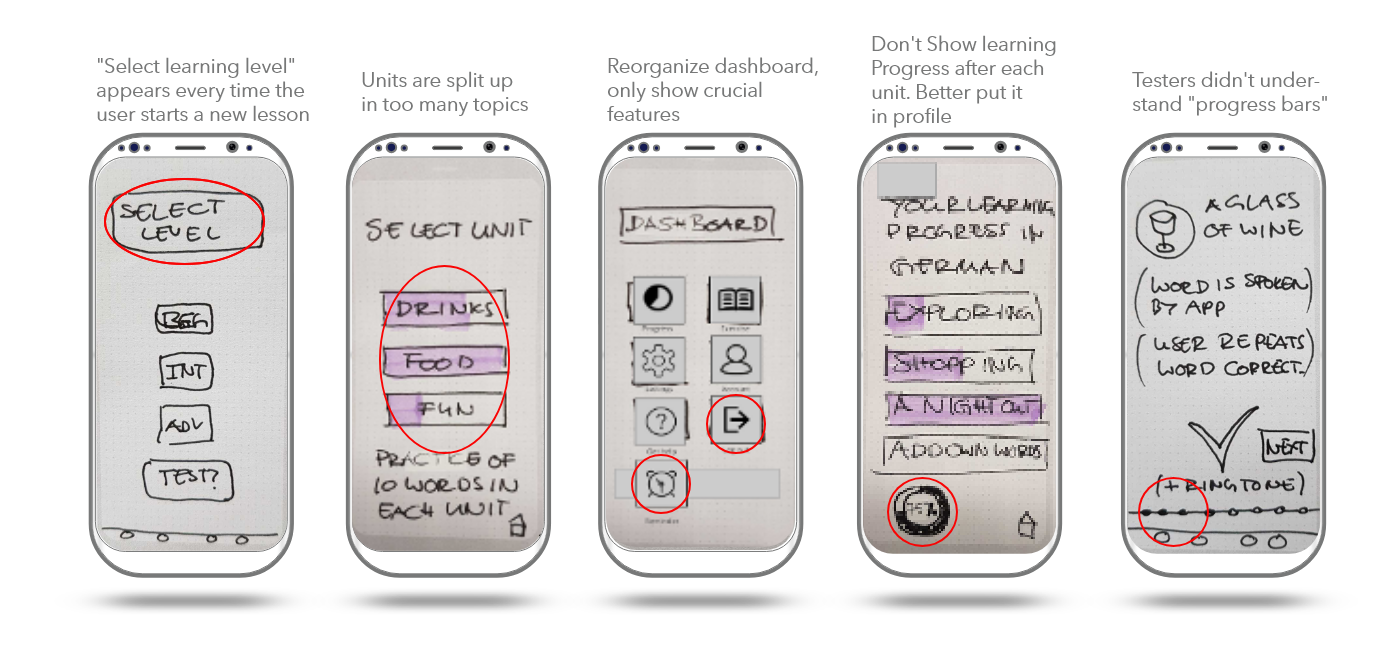 "Select learning level"
appears every time the
user starts a new lesson
SELECT
LEVEL
BEG
INT
ADV
TEST?
Units are split up
in too many topics
SELECT UNIT
DRINKS
FOOD
FUN
PRACTICE OF
10 WORDS IN
EACH UNIT
Reorganize dashboard,
only show crucial
features
DASHBOARD
Progress
Exercise
Settings
Account
?
Reminder
Don't Show learning
Progress after each
unit. Better put it
in profile
YOUR LEARNING
PROGRESS IN
GERMAN
EXPLORING
SHOPPING
A NIGHT OUT
ADD OWN WORDS
75%
Testers didn't under-
stand "progress bars"
A GLASS
OF WINE
(WORD IS SPOKEN
BY APP)
(USER REPEATS
WORD CORRECT.)
NEXT
(+ RINGTONE)